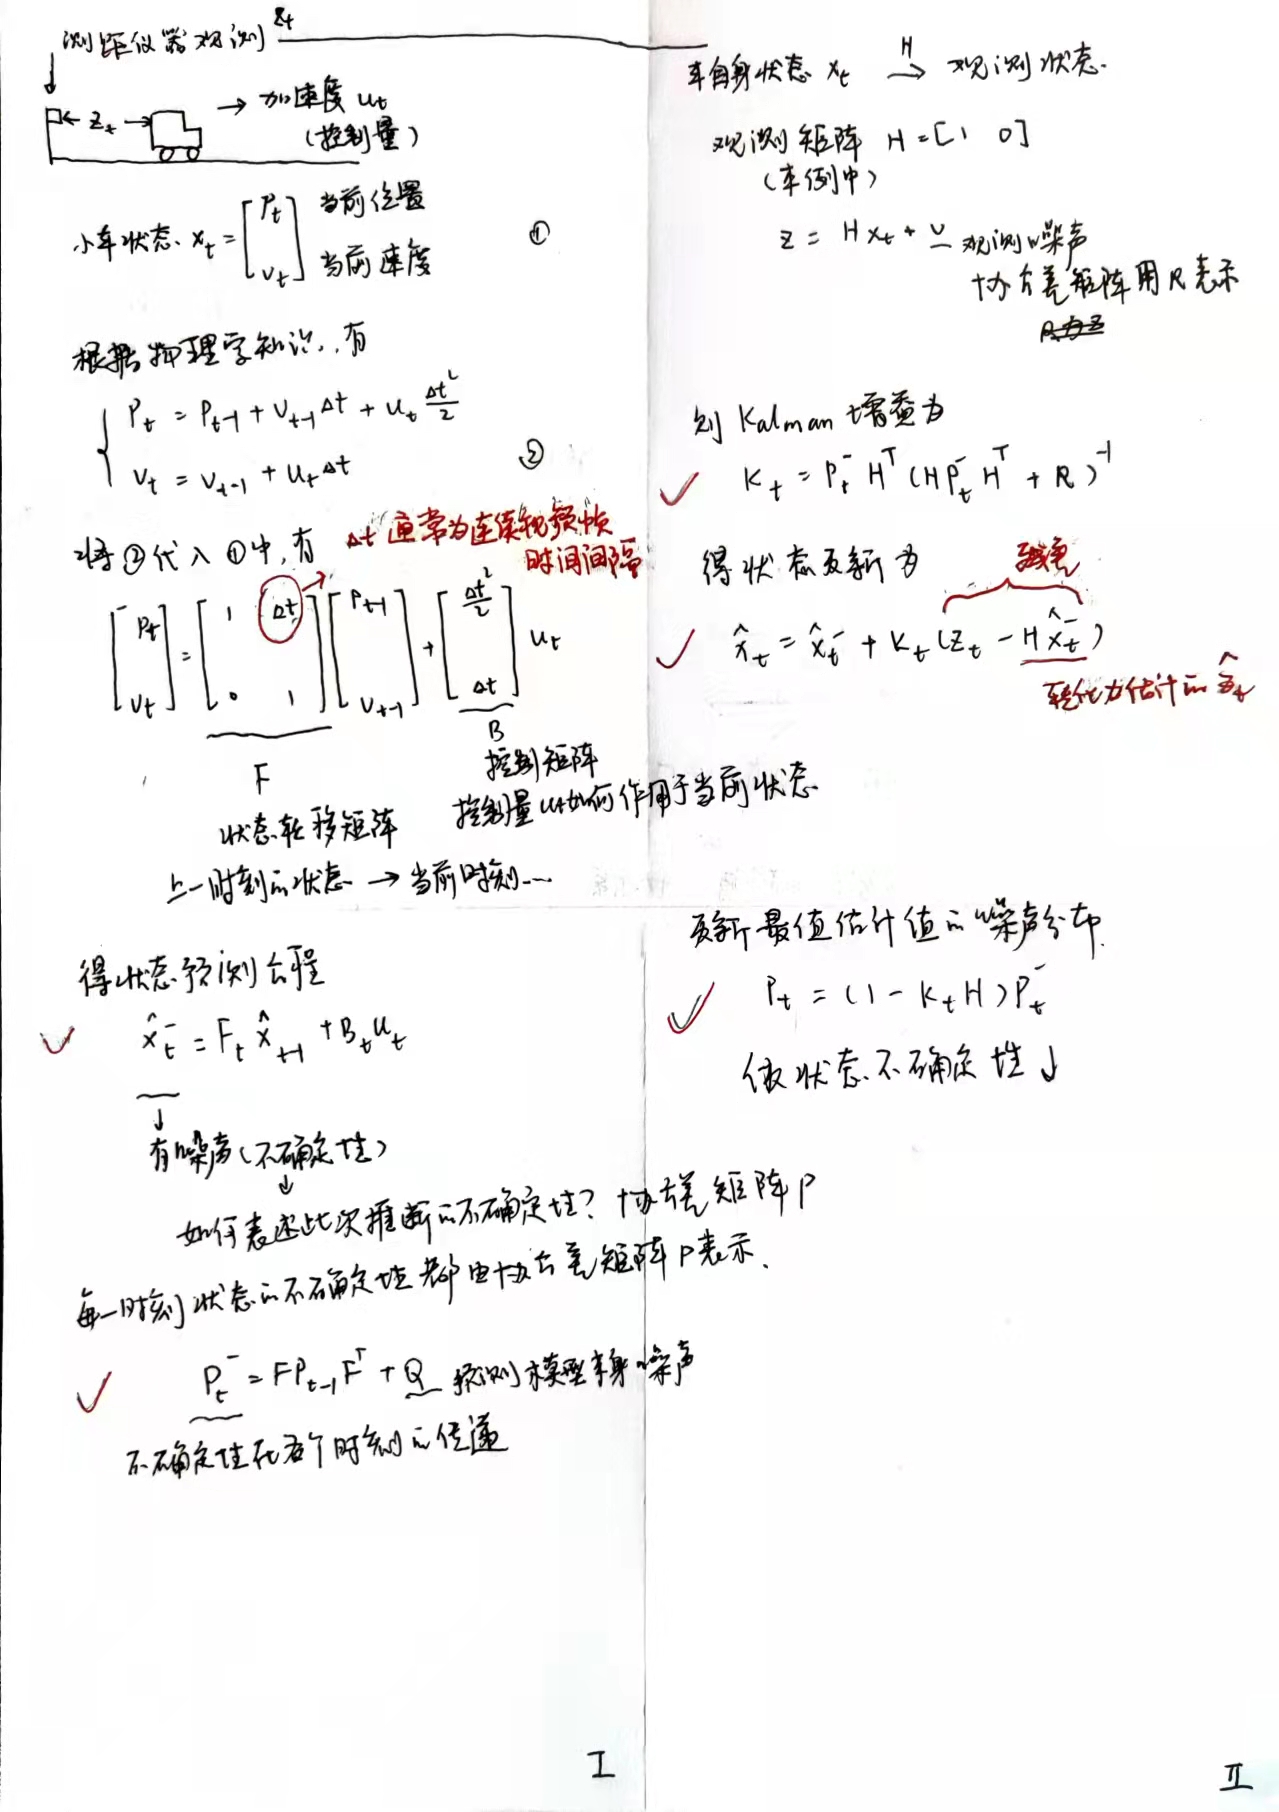 测距仪器观测 Zt
Zt → 加速度 ut
(控制量)
小车状态 xt = [Pt vt] 当前位置 当前速度 ①
根据物理学知识, 有
Pt = Pt-1 + Vt-1 Δt + ut Δt²/2
Vt = Vt-1 + ut Δt ②
将②代入①中, 有
Δt 通常为连续视频帧
时间间隔
[Pt vt] = [1 Δt 0 1] [Pt-1 Vt-1] + [Δt²/2 Δt] ut
F
B
状态转移矩阵
控制矩阵
控制量ut如何作用于当前状态
上一时刻的状态 → 当前时刻...
得状态预测公程
x̂t⁻ = Ft x̂t-1 + Bt ut
↓
有噪声(不确定性)
↓
如何表述此次推断的不确定性? 协方差矩阵P
每一时刻状态的不确定性都由协方差矩阵P表示.
Pt⁻ = FPt-1Fᵀ + Q 预测模型本身噪声
不确定性在各个时刻的传递
I
车自身状态 xt H→ 观测状态.
观测矩阵 H = [1 0]
(车例中)
Z = Hxt + v 观测噪声
协方差矩阵用R表示
则 Kalman 增益为
Kt = Pt⁻ Hᵀ (HPt⁻Hᵀ + R)⁻¹
得状态更新为
残差
x̂t = x̂t⁻ + Kt (Zt - Hx̂t⁻)
转化为估计的 ẑt
更新最值估计值的噪声分布.
Pt = (1 - KtH)Pt⁻
使状态不确定性↓
II